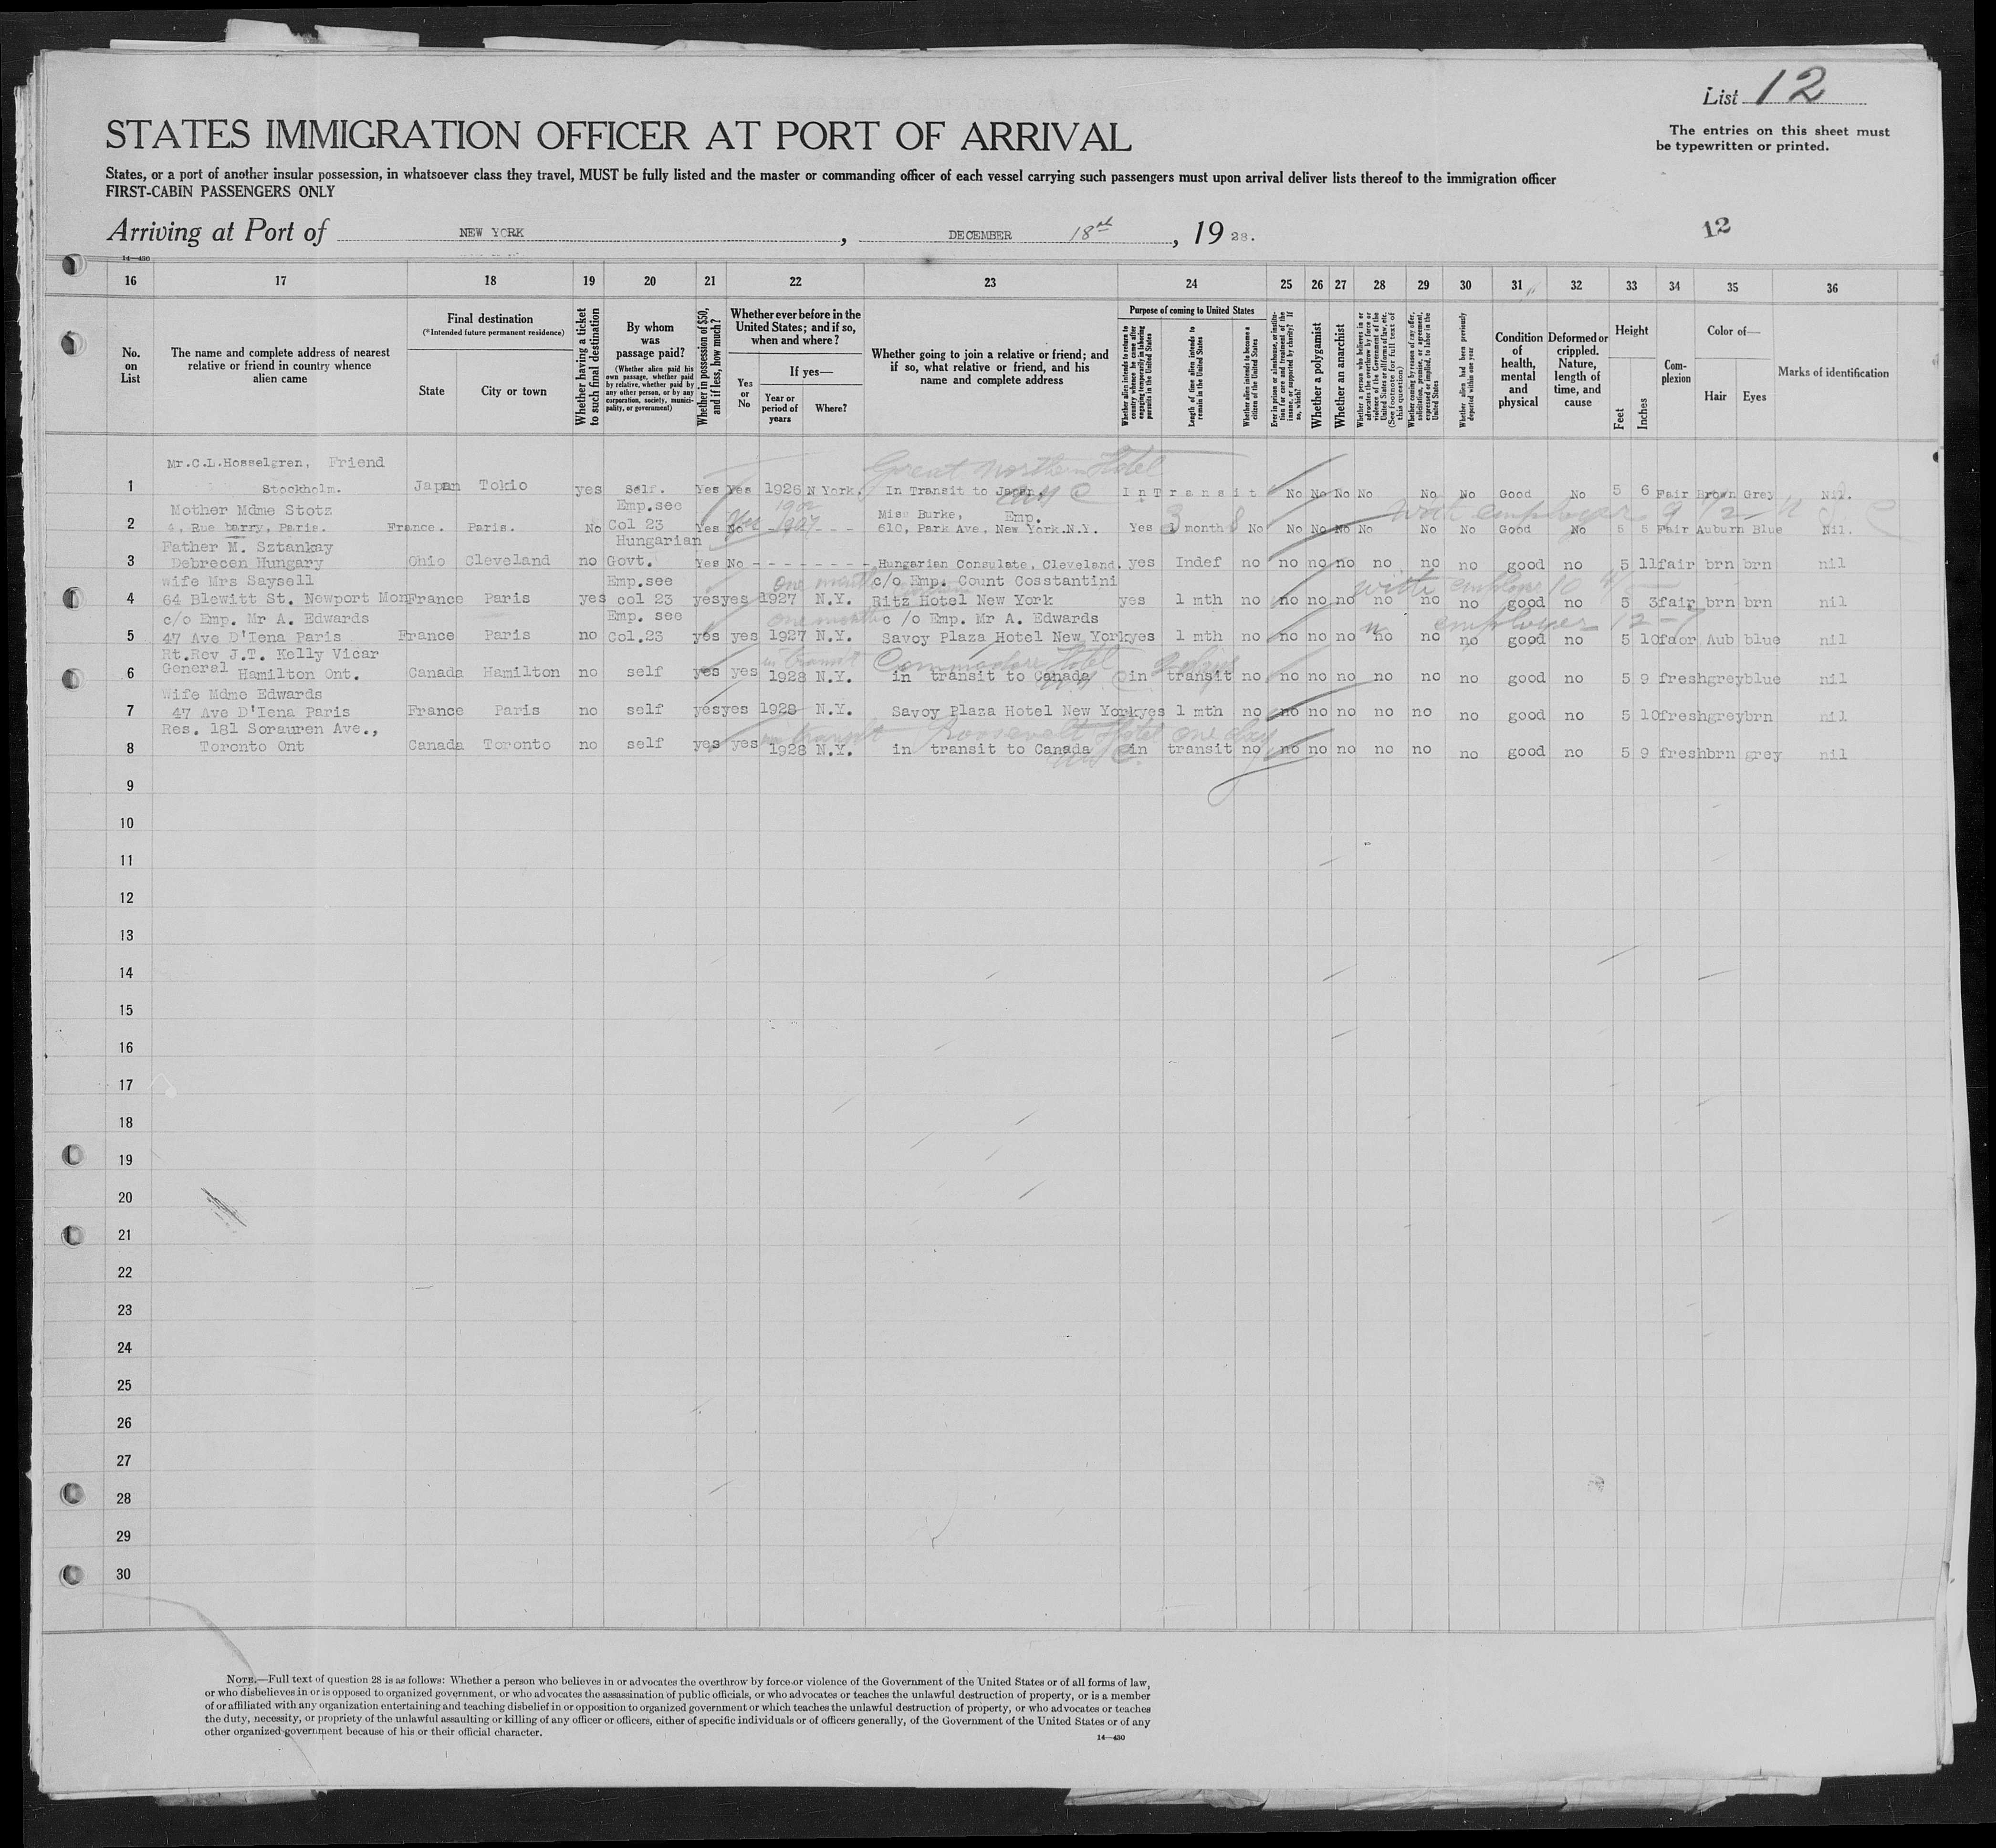 List 12
The entries on this sheet must
be typewritten or printed.
STATES IMMIGRATION OFFICER AT PORT OF ARRIVAL
States, or a port of another insular possession, in whatsoever class they travel, MUST be fully listed and the master or commanding officer of each vessel carrying such passengers must upon arrival deliver lists thereof to the immigration officer
FIRST-CABIN PASSENGERS ONLY
Arriving at Port of NEW YORK, DECEMBER 18th, 19 28.
12
14—430
16 17 18 19 20 21 22 23 24 25 26 27 28 29 30 31 32 33 34 35 36
No. on List
The name and complete address of nearest relative or friend in country whence alien came
Final destination
(*Intended future permanent residence)
State
City or town
Whether having a ticket to such final destination
By whom was passage paid?
(Whether alien paid his own passage, whether paid by relative, whether paid by any other person, or by any corporation, society, municipality, or government)
Whether in possession of $50, and if less, how much?
Whether ever before in the United States; and if so, when and where?
Yes or No
If yes—
Year or period of years
Where?
Whether going to join a relative or friend; and if so, what relative or friend, and his name and complete address
Purpose of coming to United States
Whether alien intends to return to country whence he came after engaging temporarily in laboring pursuits in the United States
Length of time alien intends to remain in the United States
Whether alien intends to become a citizen of the United States
Ever in prison or almshouse, or institution for care and treatment of the insane, or supported by charity? If so, which?
Whether a polygamist
Whether an anarchist
Whether a person who believes in or advocates the overthrow by force or violence of the Government of the United States or all forms of law, etc. (See footnote for full text of this question)
Whether coming by reason of any offer, solicitation, promise, or agreement, expressed or implied, to labor in the United States
Whether alien had been previously deported within one year
Condition of health, mental and physical
Deformed or crippled. Nature, length of time, and cause
Height
Feet
Inches
Complexion
Color of—
Hair
Eyes
Marks of identification
Mr.C.L.Hosselgren, Friend
Great Northern Hotel
1 Stockholm. Japan Tokio yes Self. Yes Yes 1926 N York. In Transit to Japan. N Y C In Transit No No No No No No Good No 5 6 Fair Brown Grey Nil.
Mother Mdme Stotz Emp.see 1902 Miss Burke, Emp. 3 with employer
2 4, Rue barry, Paris. France. Paris. No Col 23 Yes No Yes 1927 - - - 610, Park Ave, New York.N.Y. Yes 1 month No No No No No No No Good No 5 5 Fair Auburn Blue Nil.
Father M. Sztankay Hungarian
3 Debrecen Hungary Ohio Cleveland no Govt. Yes No - - - - - - - - Hungarian Consulate, Cleveland. yes Indef no no no no no no no good no 5 11 fair brn brn nil
wife Mrs Saysell Emp.see one month c/o Emp. Count Cosstantini with employer 10
4 64 Blewitt St. Newport Mon France Paris yes col 23 yes yes 1927 N.Y. Ritz Hotel New York yes 1 mth no no no no no no no good no 5 3 fair brn brn nil
c/o Emp. Mr A. Edwards Emp. see one month c /o Emp. Mr A. Edwards employer 12-7
5 47 Ave D'Iena Paris France Paris no Col.23 yes yes 1927 N.Y. Savoy Plaza Hotel New York yes 1 mth no no no no no no no good no 5 10 faor Aub blue nil
Rt.Rev J.T. Kelly Vicar in transit Commodore Hotel 2 days
6 General Hamilton Ont. Canada Hamilton no self yes yes 1928 N.Y. in transit to Canada in transit no no no no no no no good no 5 9 fresh grey blue nil
Wife Mdme Edwards
7 47 Ave D'Iena Paris France Paris no self yes yes 1928 N.Y. Savoy Plaza Hotel New York yes 1 mth no no no no no no no good no 5 10 fresh grey brn nil
Res. 181 Sorauren Ave., in transit Roosevelt Hotel one day
8 Toronto Ont Canada Toronto no self yes yes 1928 N.Y. in transit to Canada in transit no no no no no no no good no 5 9 fresh brn grey nil
9
10
11
12
13
14
15
16
17
18
19
20
21
22
23
24
25
26
27
28
29
30
NOTE.—Full text of question 28 is as follows: Whether a person who believes in or advocates the overthrow by force or violence of the Government of the United States or of all forms of law,
or who disbelieves in or is opposed to organized government, or who advocates the assassination of public officials, or who advocates or teaches the unlawful destruction of property, or is a member
of or affiliated with any organization entertaining and teaching disbelief in or opposition to organized government or which teaches the unlawful destruction of property, or who advocates or teaches
the duty, necessity, or propriety of the unlawful assaulting or killing of any officer or officers, either of specific individuals or of officers generally, of the Government of the United States or of any
other organized government because of his or their official character.
14—430